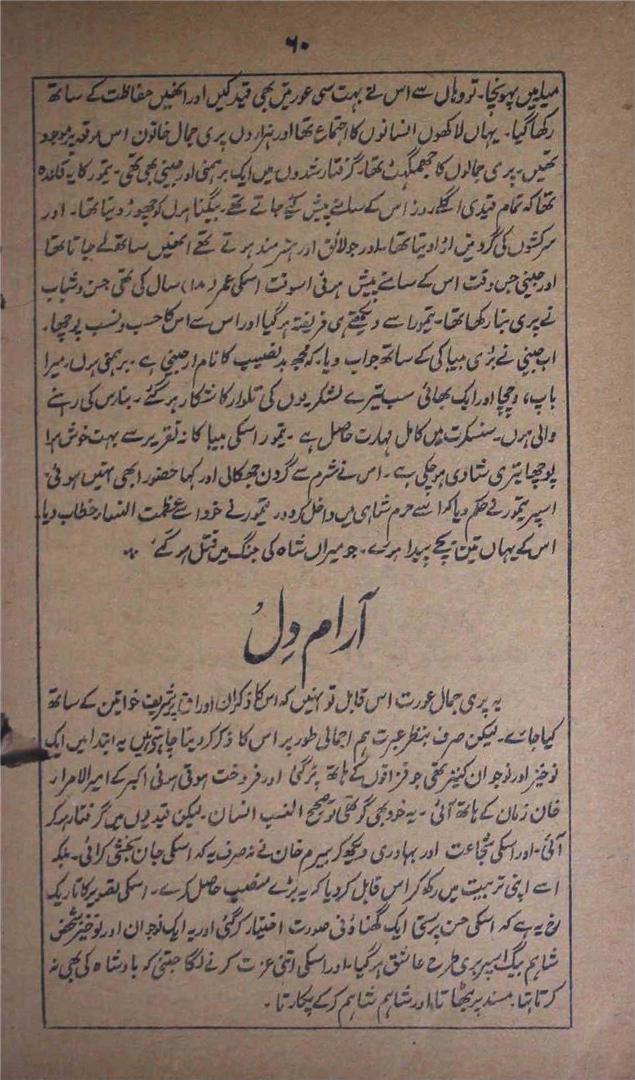 ۶۰
میلہ میں پہونچا۔ تو وہاں سے اس نے بہت سی عورتیں بھی قید کیں اور انھیں حفاظت کے ساتھ
رکھا گیا۔ یہاں لاکھوں انسانوں کا اجتماع تھا اور ہزاردں پری جمال خاتون اس موقعہ پر موجود
تھیں۔ پری جمالوں کا جھمگھٹ تھا۔ گرفتار شدوں میں ایک برہمنی اور جبینی بھی تھی۔ تیمور کا یہ قاعدہ
تھا کہ تمام قیدی اگلے روز اس کے سامنے پیش کئے جاتے تھے۔ بیگناہوں کو چھوڑ دیتا تھا۔ اور
سرکشوں کی گردنیں اڑا دیتا تھا۔ اور جو لائق اور ہنرمند ہوتے تھے انھیں ساتھ لے جاتا تھا
اور جبینی جس وقت اس کے سامنے پیش ہوئی اسوقت اسکی عمر (۱۸) سال کی تھی حسن و شباب
نے پری بنا رکھا تھا۔ تیمور اسے دیکھتے ہی فریفتہ ہو گیا اور اس سے اس کا حسب و نسب پوچھا۔
اب جبینی نے بڑی بیباکی کے ساتھ جواب دیا۔ کہ مجھ بد نصیب کا نام ارجبینی ہے۔ برہمنی ہوں۔ میرا
باپ، چچا اور ایک بھائی سب تیرے لشکریوں کی تلوار کا شکار ہو گئے۔ بنارس کی رہنے
والی ہوں۔ سنسکرت میں کامل مہارت حاصل ہے۔ تیمور اسکی بیباکانہ تقریر سے بہت خوش ہوا
پوچھا تیری شادی ہو چکی ہے۔ اس نے شرم سے گردن جھکالی اور کہا حضور ابھی نہیں ہوئی۔
اسپر تیمور نے حکم دیا کہ اسے حرم شاہی میں داخل کر دو۔ تیمور نے خود اسے عظمت النساء خطاب دیا۔
اس کے یہاں تین بچے پیدا ہوئے۔ جو میراں شاہ کی جنگ میں قتل ہو گئے۔
آرام دِل
یہ پری جمال عورت اس قابل تو نہیں کہ اس کا ذکر ان اوراق پر شریف خواتین کے ساتھ
کیا جائے۔ لیکن صرف بنظر عبرت ہم اجمالی طور پر اس کا ذکر کر دینا چاہتے ہیں یہ ابتدا میں ایک
نوخیز اور نوجوان کنیز تھی جو قزاقوں کے ہاتھ پڑ گئی اور فروخت ہوتی ہوئی اکبر کے امیرالامراء
خان زمان کے ہاتھ آئی۔ یہ خود بھی گو تھی تو صحیح النسب انسان۔ لیکن قیدیوں میں گرفتار ہو کر
آئی۔ اور اسکی شجاعت اور بہادری دیکھ کر بیرم خان نے نہ صرف یہ کہ اسکی جان بخشی کرائی۔ بلکہ
اسے اپنی تربیت میں رکھ کر اس قابل کر دیا کہ یہ بڑے منصب حاصل کرے۔ اسکی تصویر کا تاریک
رخ یہ ہے کہ اسکی حسن پرستی ایک گھناؤنی صورت اختیار کر گئی اور یہ ایک نوجوان اور نوخیز شخص
شاہم بیگ اسپر بری طرح عاشق ہو گیا۔ اور اسکی اتنی عزت کرنے لگا جتنی کہ بادشاہ کی بھی نہ
کرتا تھا۔ مسند پر بٹھاتا اور شاہم شاہم کر کے پکارتا۔